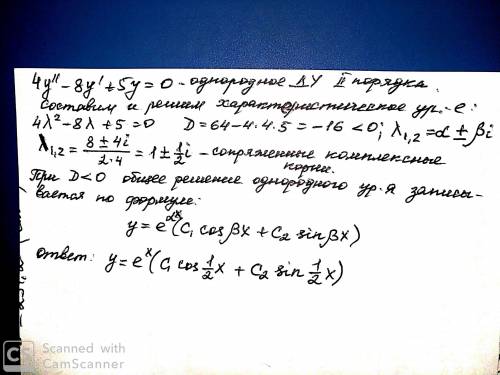 4y'' - 8y' + 5y = 0 - однородное ДУ II порядка.
Составим и решим характеристическое ур.-е:
4λ² - 8λ + 5 = 0 D = 64 - 4·4·5 = -16 < 0; λ₁,₂ = α ± βi
λ₁,₂ = (8 ± 4i)/(2·4) = 1 ± 1/2 i - сопряженные комплексные
корни.
При D < 0 общее решение однородного ур-я записы-
вается по формуле:
y = e^{αx} (C₁ cos βx + C₂ sin βx)
Ответ: y = e^x (C₁ cos 1/2 x + C₂ sin 1/2 x)
CS Scanned with
CamScanner